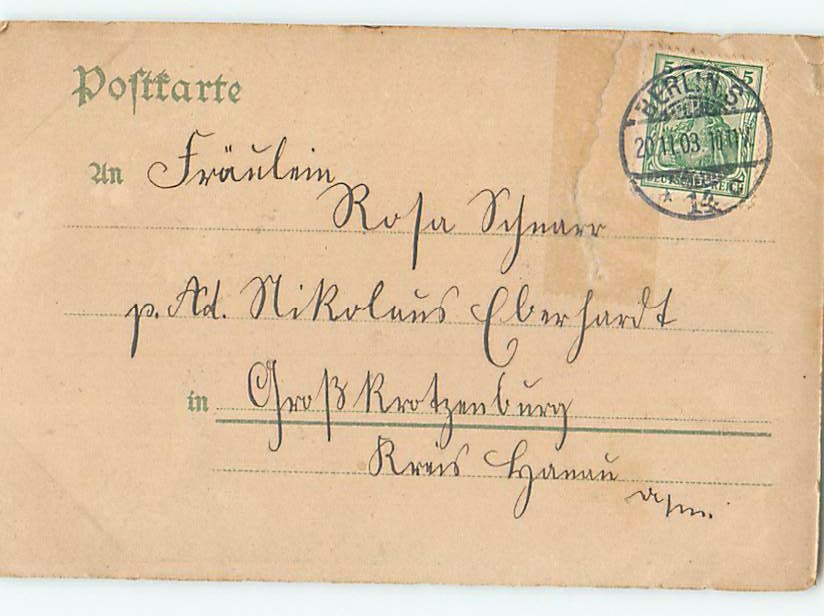 Postkarte
5 5
BERLIN. S.
20.11.03. 11-12V.
DEUTSCHES REICH
* 14
An Fräulein
Rosa Schnarr
p. Ad. Nikolaus Eberhardt
in Großkrotzenburg
Kreis Hanau
a/m.